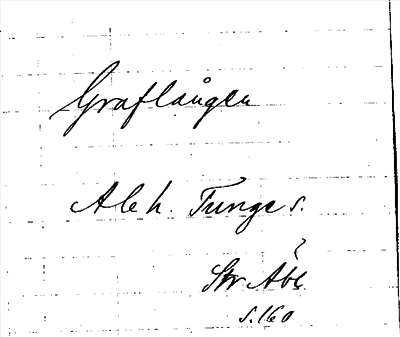 Graflången
Aleh. Tunge s.
?
Str Åbg
s. 160